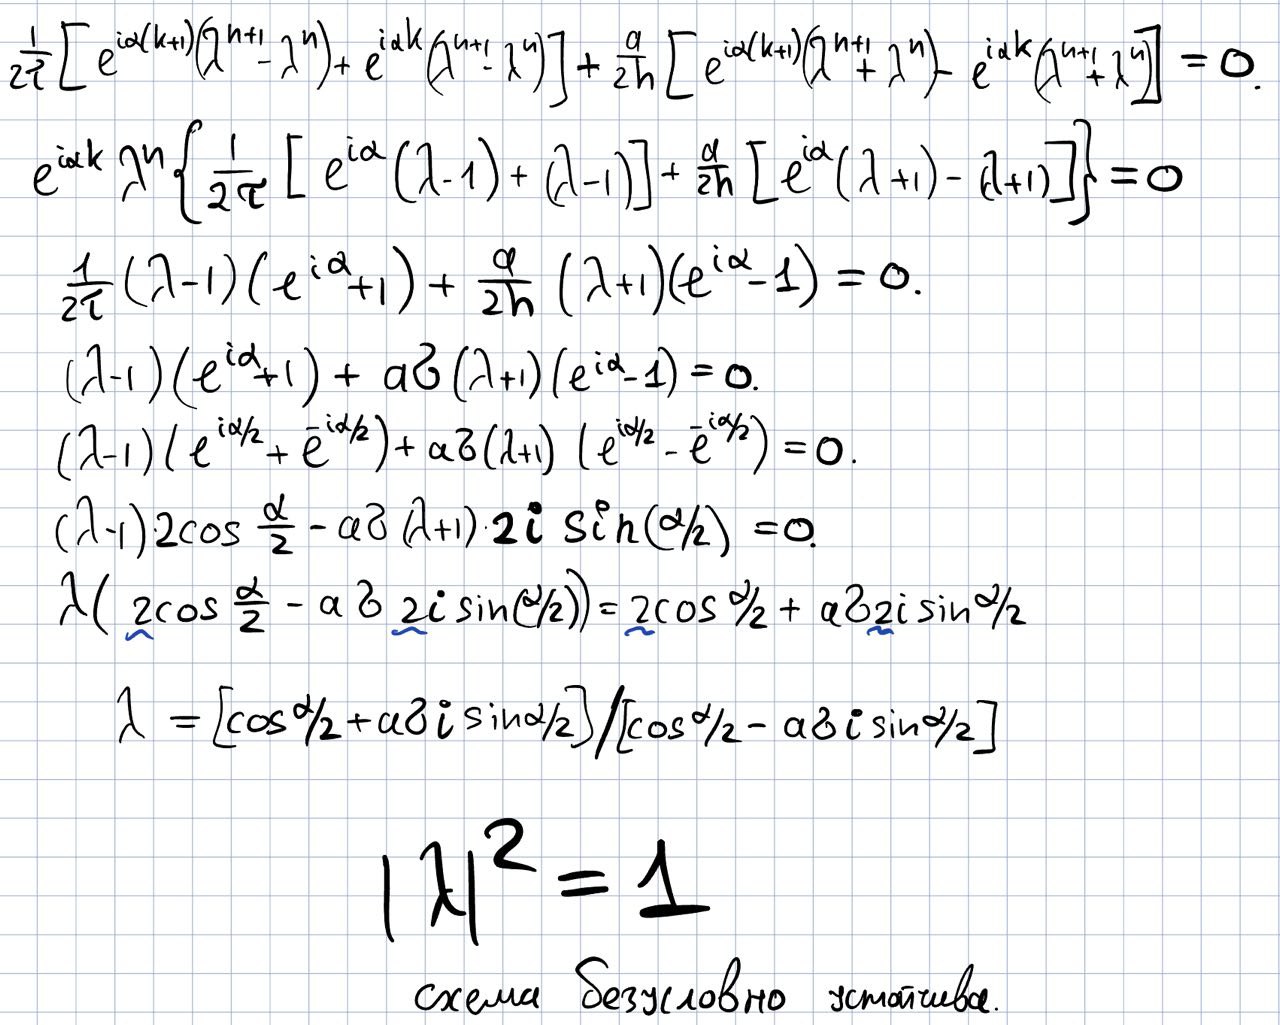 1/2τ [e^{iα(k+1)}(λ^{n+1} - λ^n) + e^{iαk}(λ^{n+1} - λ^n)] + a/2h [e^{iα(k+1)}(λ^{n+1} + λ^n) - e^{iαk}(λ^{n+1} + λ^n)] = 0.
e^{iαk} λ^n {1/2τ [e^{iα}(λ-1) + (λ-1)] + a/2h [e^{iα}(λ+1) - (λ+1)]} = 0
1/2τ (λ-1)(e^{iα}+1) + a/2h (λ+1)(e^{iα}-1) = 0.
(λ-1)(e^{iα}+1) + aδ(λ+1)(e^{iα}-1) = 0.
(λ-1)(e^{iα/2} + e^{-iα/2}) + aδ(λ+1)(e^{iα/2} - e^{-iα/2}) = 0.
(λ-1)·2cos α/2 - aδ(λ+1)·2i sin(α/2) = 0.
λ(2cos α/2 - aδ 2i sin(α/2)) = 2cos α/2 + aδ2i sin α/2
λ = [cos α/2 + aδ i sin α/2]/[cos α/2 - aδ i sin α/2]
|λ|² = 1
схема безусловно устойчива.